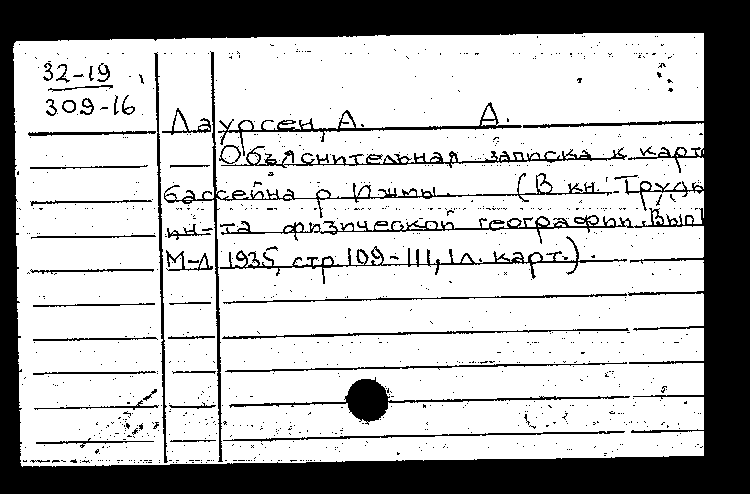 32-19
309-16
Лаурсен, А. А.
Объяснительная записка к карт
бассейна р Ижмы. (В кн. Труды
ин-та физической географии. Вып
М-Л 1935, стр 109-111, 1 л. карт.).